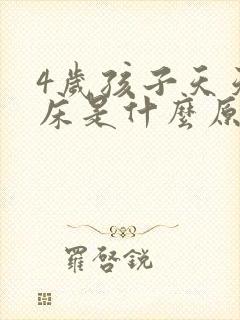 4歲孩子天天
床是什麼原
羅啓銳